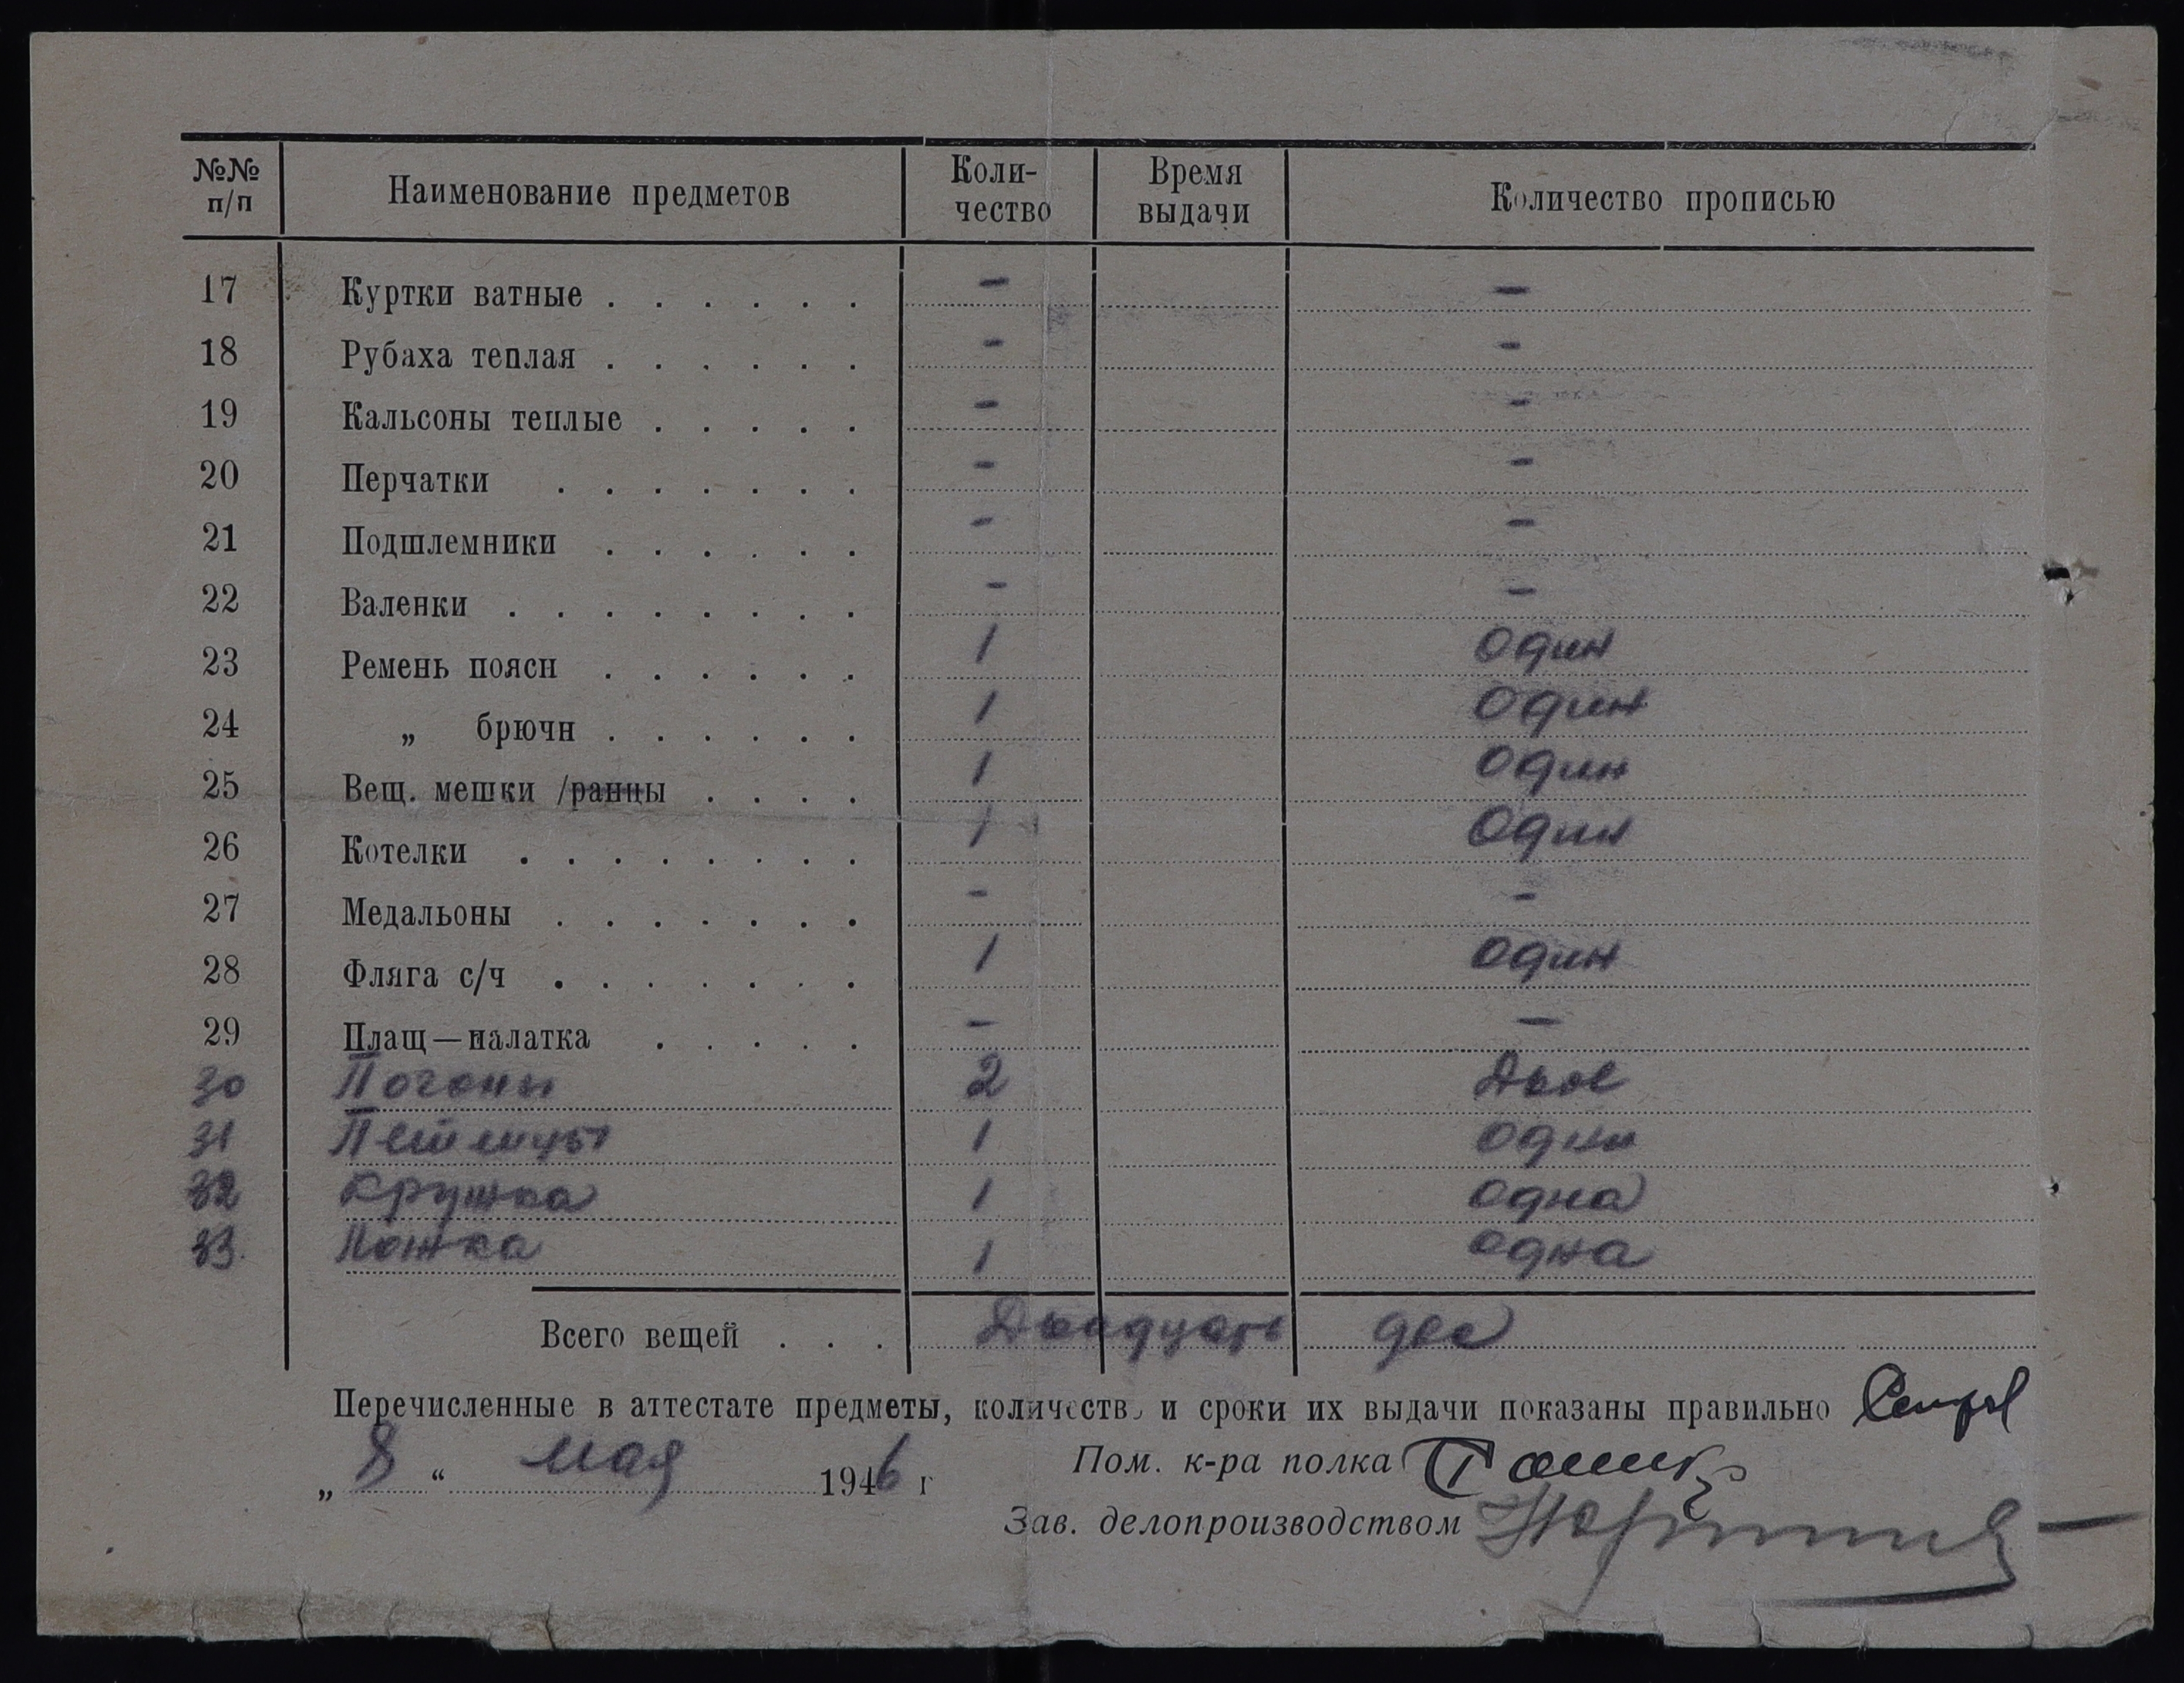 №№ п/п Наименование предметов Коли-чество Время выдачи Количество прописью
17 Куртки ватные . . . . . . - -
18 Рубаха теплая . . . . . . - -
19 Кальсоны теплые . . . . . - -
20 Перчатки . . . . . . . - -
21 Подшлемники . . . . . . - -
22 Валенки . . . . . . . . - -
23 Ремень поясн . . . . . . 1 один
24 „ брючн . . . . . . 1 один
25 Вещ. мешки /ранцы . . . . 1 один
26 Котелки . . . . . . . . 1 один
27 Медальоны . . . . . . . - -
28 Фляга с/ч . . . . . . . 1 один
29 Плащ—палатка . . . . . - —
30 Погоны 2 Двое
31 Петлицы 1 одни
32 кружка 1 одна
33. Ложка 1 одна
Всего вещей . . . Двадцать два
Перечисленные в аттестате предметы, количеств и сроки их выдачи показаны правильно
„ 8 “ мая 1946 г
Пом. к-ра полка
Зав. делопроизводством